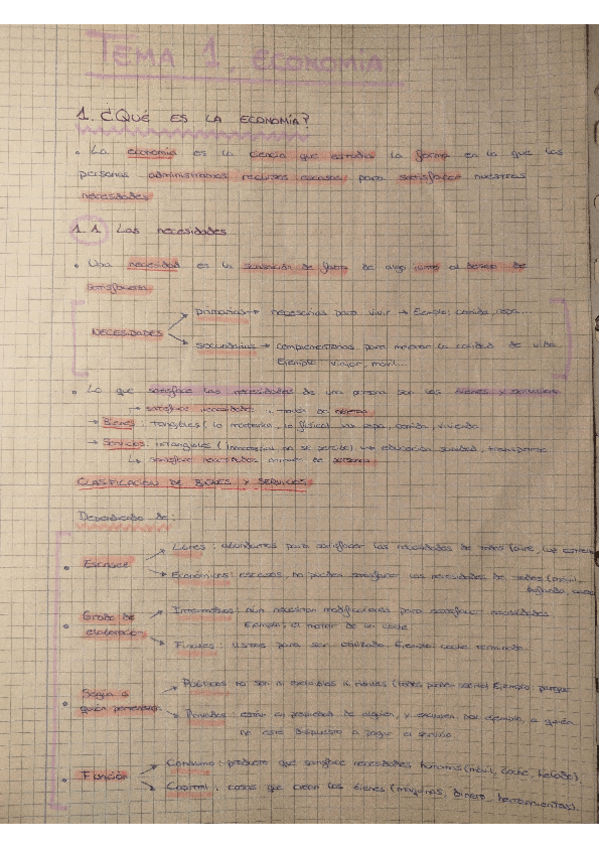 TEMA 1. ECONOMÍA
1. ¿QUÉ ES LA ECONOMÍA?
• La economía es la ciencia que estudia la forma en la que las
personas administramos recursos escasos para satisfacer nuestras
necesidades
1.1. Las necesidades
• Una necesidad es la sensación de falta de algo al deseo de
satisfacerla
primarias → necesarias para vivir → Ejemplo: comida, ropa...
Necesidades
secundarias → complementarias para mejorar la calidad de vida
Ejemplo viajar, móvil...
• Lo que satisface las necesidades de una persona son los bienes y servicios
→ satisface necesidades
→ Bienes: tangibles (lo material, lo físico) ropa, comida, vivienda
→ Servicios: intangibles (inmaterial no se percibe) → educación, sanidad, transporte
↳ satisface necesidades
CLASIFICACIÓN DE BIENES Y SERVICIOS
Dependiendo de:
Libres: abundantes para satisfacer las necesidades de todos (aire,
• Escasez
Económicos: escasos, no pueden satisfacer las necesidades de todos (móvil,
• Grado de
elaboración
Intermedios: aún necesitan modificaciones para satisfacer necesidades
Ejemplo: el motor de un coche
Finales: listos para ser utilizado. Ejemplo: coche terminado
• Según a
quién pertenezcan
Públicos no son ni excluibles ni rivales Ejemplo: parque
Privados: están en propiedad de alguien, y excluyen, por ejemplo, a quién
no esté dispuesto a pagar el servicio.
• Función
Consumo: producto que satisface necesidades humanas (móvil, coche, helado).
Capital: cosas que crean los bienes (máquinas, dinero, herramientas).